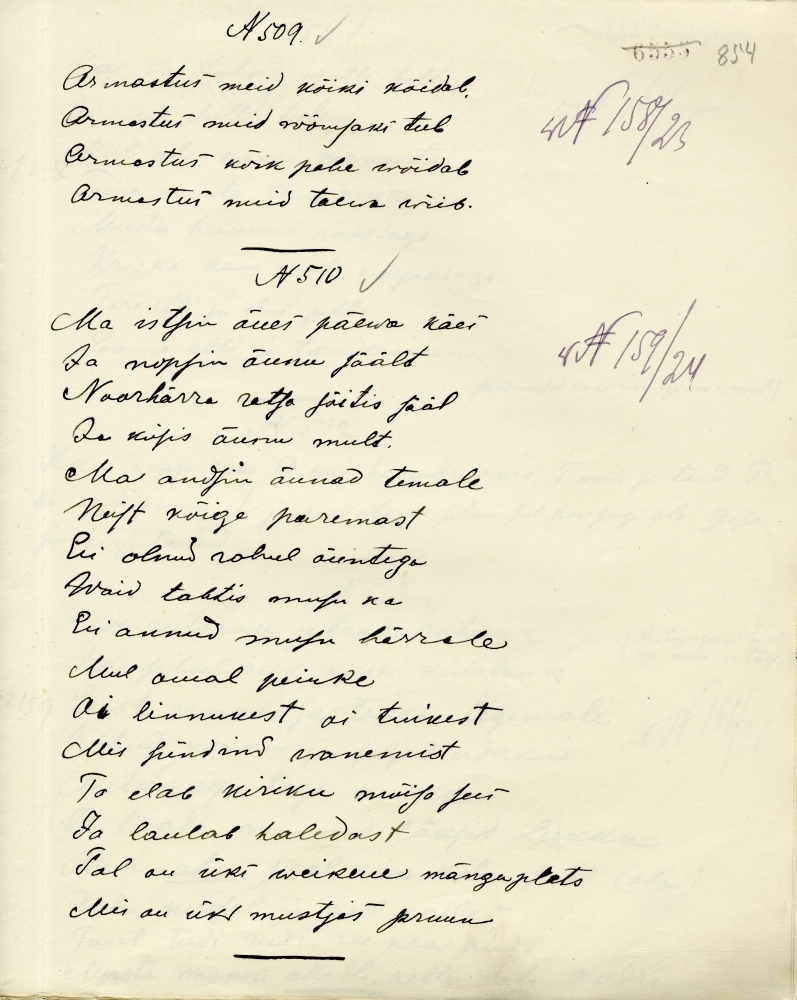 N 509.
6555 854
Armastus meid kõiki kõidab,
Armastus meid rõõmsaks teeb
Armastus kõik pahe wõidab
Armastus meid taewa wiib.
N 158/23
N 510
Ma istsin õues päewa käes
Ja nopsin õunu säält
Noorhärra ratsa sõitis sääl
Ja küsis õunu mult.
N 159/24
Ma andsin õunad temale
Neist kõige paremast
Ei olnud rahul õuntega
Waid tahtis musu ka
Ei annud musu härrale
Mul omal peiuke
Oi linnukest oi tuikest
Mis sündind wanemist
Ta elab kiriku mõisa sees
Ja laulab haledast
Tal on üks weikene mänguplats
Mis on üks mustjas pruun